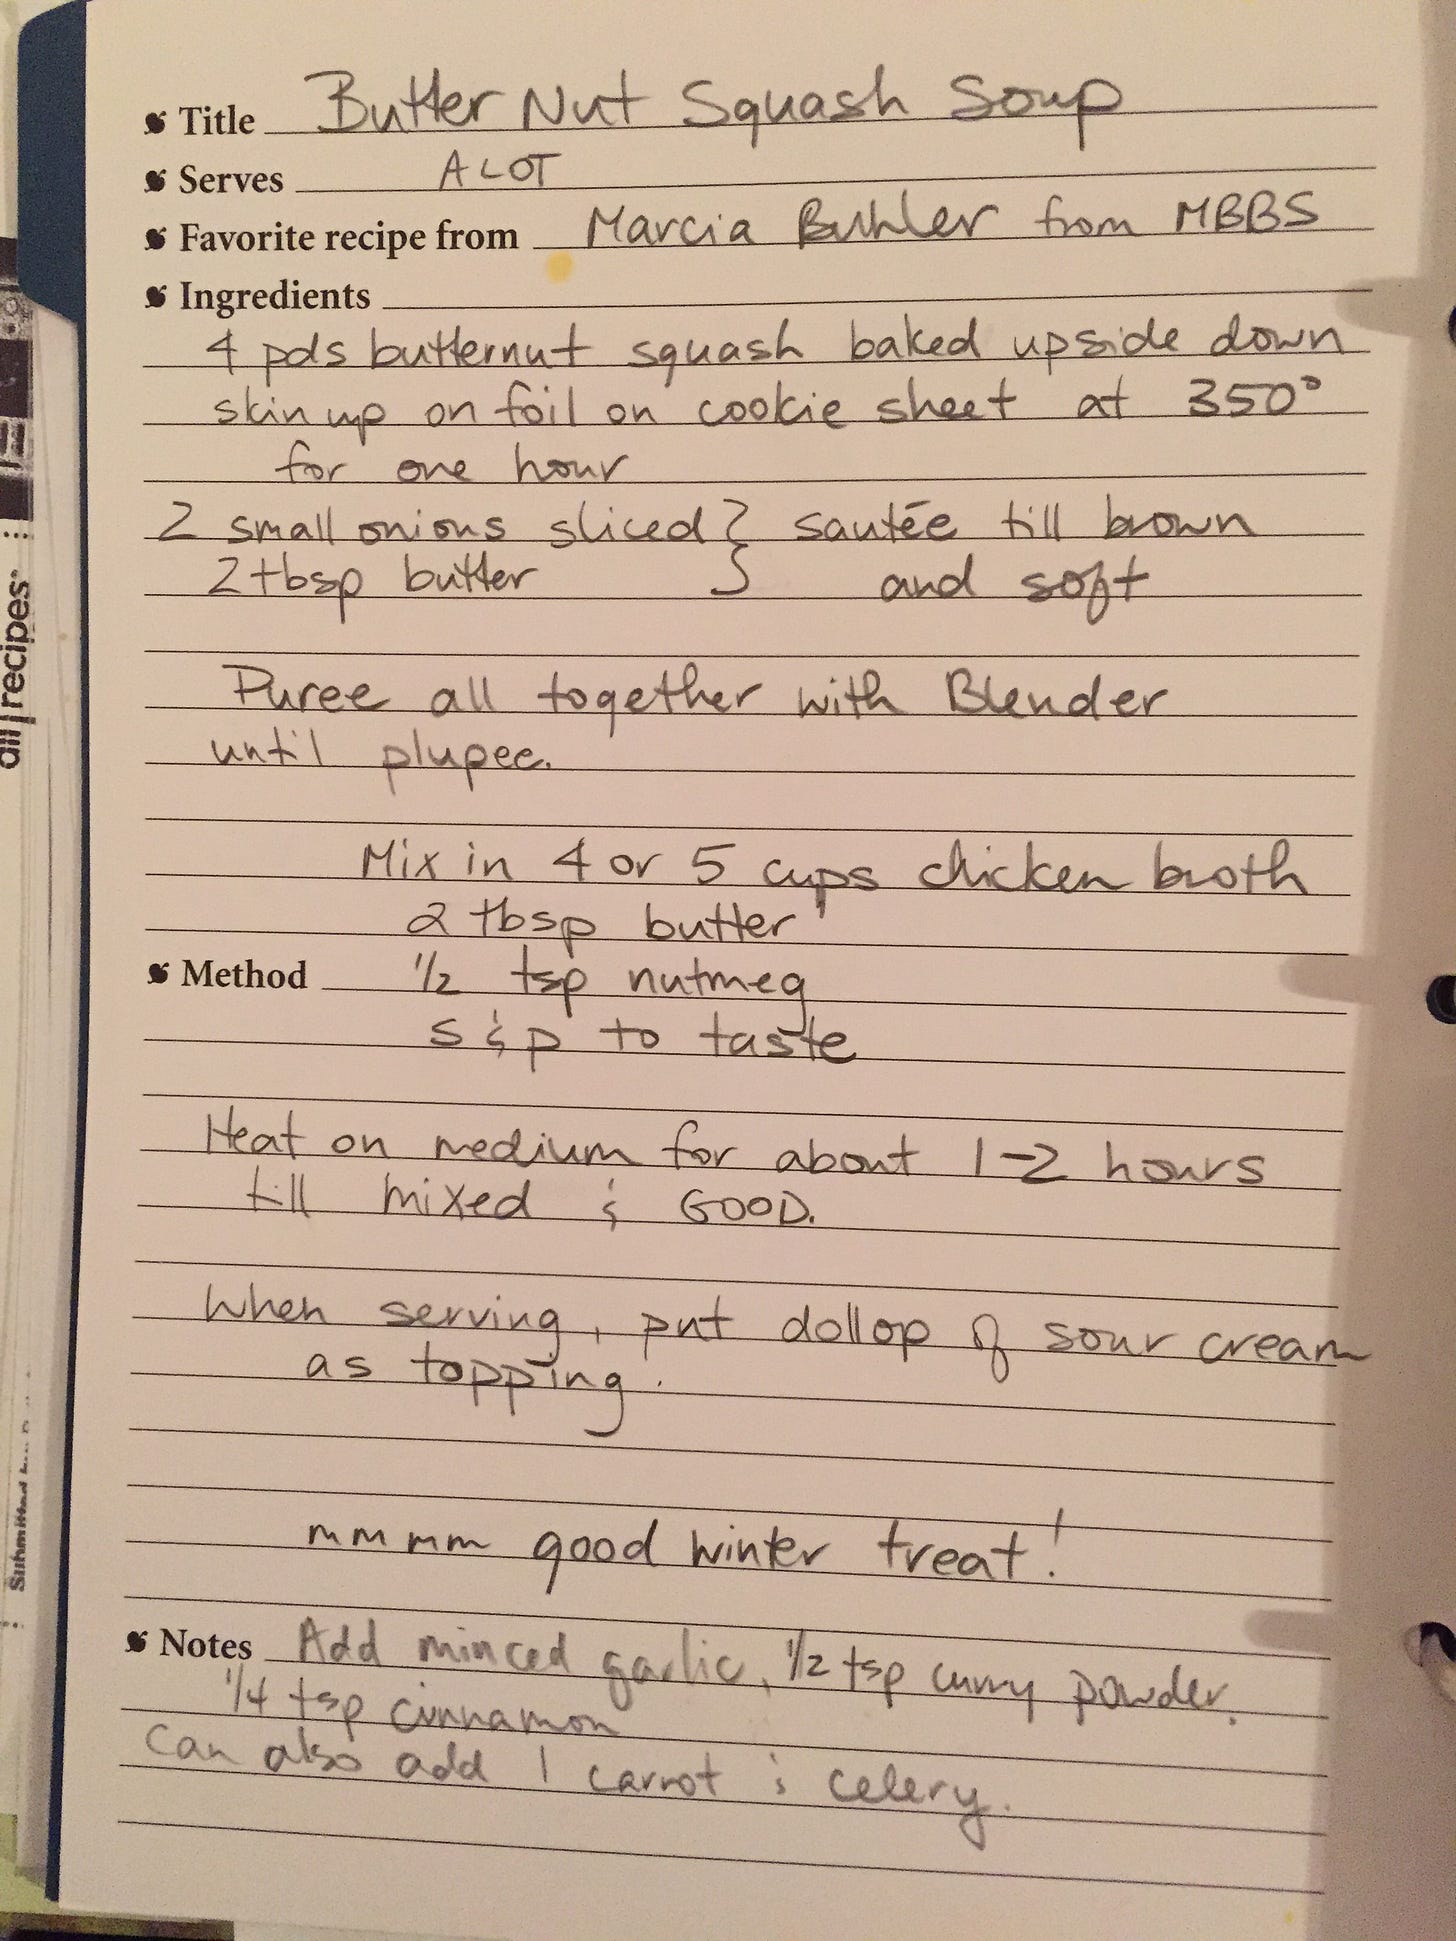 Title Butter Nut Squash Soup
Serves A LOT
Favorite recipe from Marcia Buhler from MBBS
Ingredients
4 pds butternut squash baked upside down
skin up on foil on cookie sheet at 350°
for one hour
2 small onions sliced } sautée till brown
2 tbsp butter } and soft
Puree all together with Blender
until plupee.
Mix in 4 or 5 cups chicken broth
2 tbsp butter
Method 1/2 tsp nutmeg
S & p to taste
Heat on medium for about 1-2 hours
till mixed & GOOD.
When serving, put dollop of sour cream
as topping.
mmmm good winter treat!
Notes Add minced garlic, 1/2 tsp curry powder.
1/4 tsp cinnamon
Can also add 1 carrot & celery.
all recipes